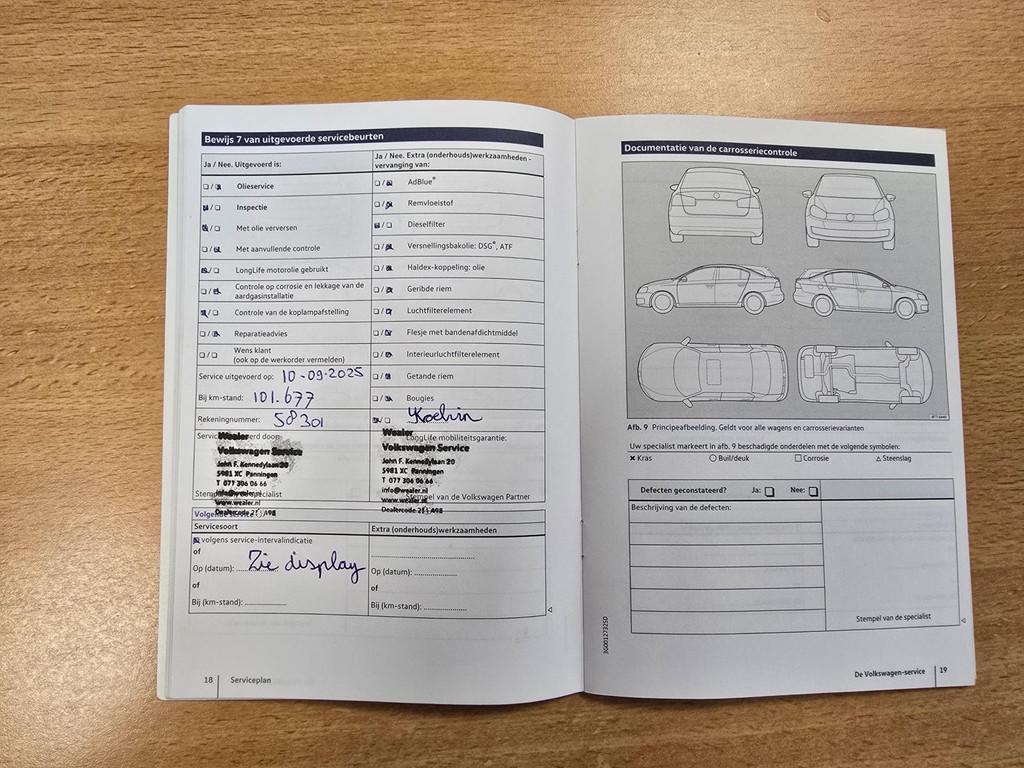 Bewijs 7 van uitgevoerde servicebeurten
Ja / Nee. Uitgevoerd is:
Olieservice
Inspectie
Met olie verversen
Met aanvullende controle
LongLife motorolie gebruikt
Controle op corrosie en lekkage van de
aardgasinstallatie
Controle van de koplampafstelling
Reparatieadvies
Wens klant
(ook op de werkorder vermelden)
Service uitgevoerd op: 10-09-2025
Bij km-stand: 101.677
Rekeningnummer: 58301
Ja / Nee. Extra (onderhouds)werkzaamheden -
vervanging van:
AdBlue®
Remvloeistof
Dieselfilter
Versnellingsbakolie: DSG®, ATF
Haldex-koppeling: olie
Geribde riem
Luchtfilterelement
Flesje met bandenafdichtmiddel
Interieurluchtfilterelement
Getande riem
Bougies
Wealer
Volkswagen Service
John F. Kennedylaan 20
5981 XC Panningen
T 077 306 06 66
info@wealer.nl
www.wealer.nl
LongLife mobiliteitsgarantie:
Wealer
Volkswagen Service
John F. Kennedylaan 20
5981 XC Panningen
T 077 306 06 66
info@wealer.nl
www.wealer.nl
Stempel van de Volkswagen Partner
Volgende service:
Servicesoort
volgens service-intervalindicatie
of
Op (datum): Zie display
of
Bij (km-stand):
Extra (onderhouds)werkzaamheden
Op (datum):
Bij (km-stand):
18 Serviceplan
Documentatie van de carrosseriecontrole
Afb. 9 Principeafbeelding. Geldt voor alle wagens en carrosserievarianten
Uw specialist markeert in afb. 9 beschadigde onderdelen met de volgende symbolen:
× Kras ○ Buil/deuk □ Corrosie △ Steenslag
Defecten geconstateerd? Ja: □ Nee: □
Beschrijving van de defecten:
Stempel van de specialist
3G0012732SD
De Volkswagen-service 19